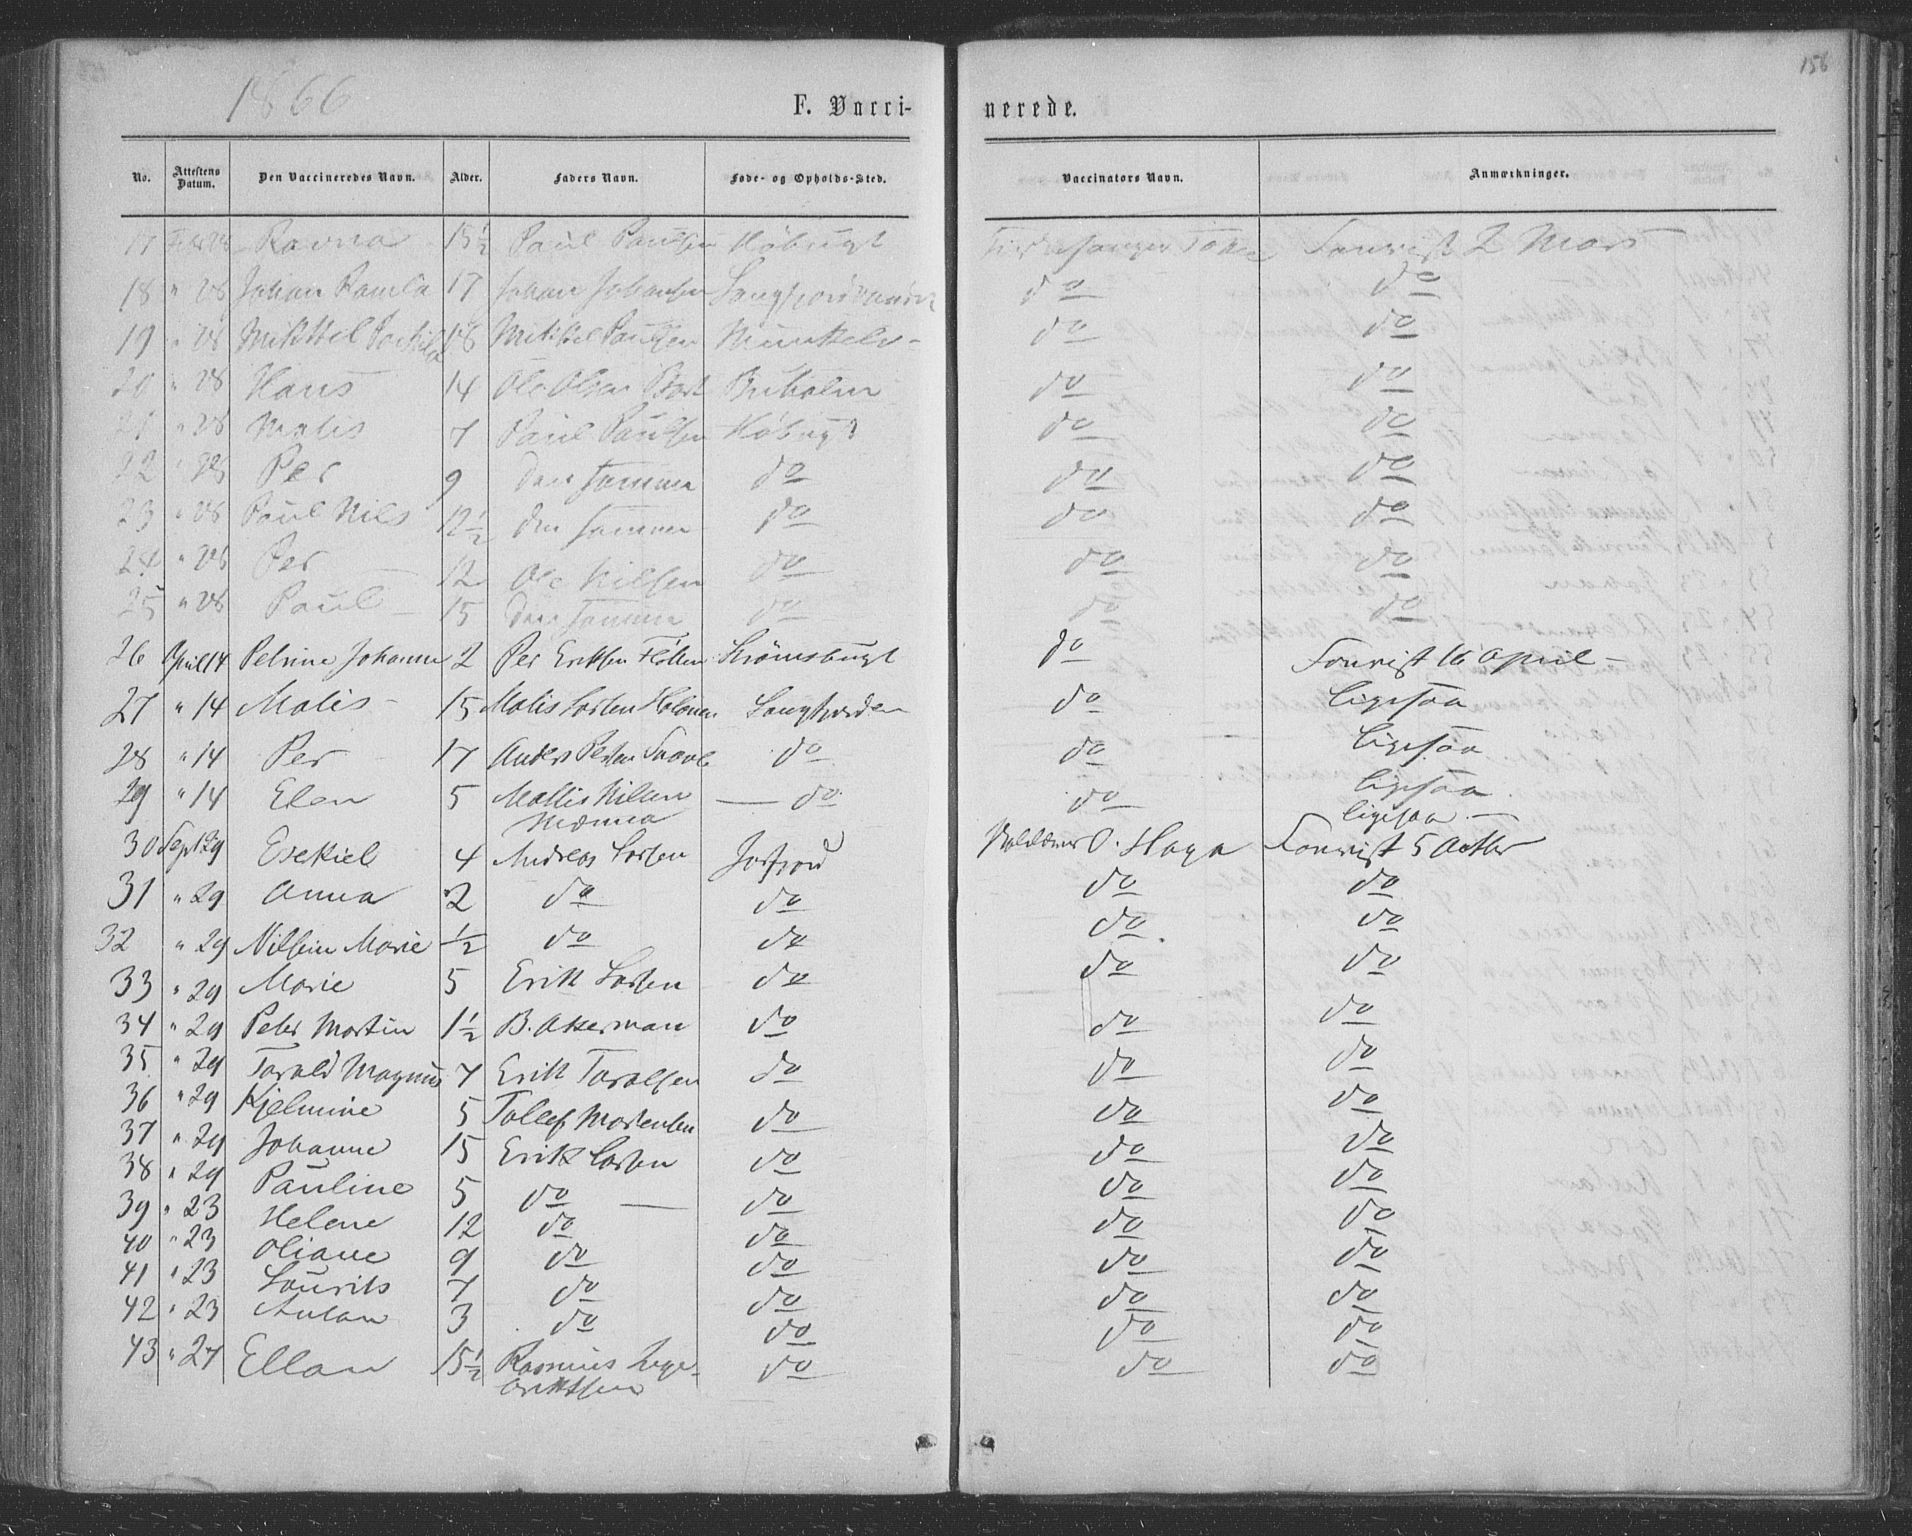 1866
F. Vacci-
nerede.
156
No. Attestens Datum. Den Vaccineredes Navn. Alder. Faders Navn. Føde- og Opholds-Sted. Vaccinators Navn. Anmærkninger.
17 Febr 28 Ravna 15½ Paul Paulsen Høbugt Forevist 2 Mars
18 " 28 Johan 17 Johan Johansen do do
19 " 28 Mikkel 16 Mikkel Paulsen Munkelv- do do
20 " 28 Hans 14 Ole Olsen Buholm do do
21 " 28 Matis 7 Paul Paulsen Høbugt do do
22 " 28 Per 9 den samme do do do
23 " 28 Paul Nils 12½ den samme do do do
24 " 28 Per 12 Ole Nilsen do do do
25 " 28 Paul 15 den samme do do do
26 April 14 Petrine Johanne 2 Per Eriksen Strømsbugt do Forevist 16 April -
27 " 14 Matis - 15 Matis Larsen Langfjorden do ligesaa
28 " 14 Per 17 Anders Persen do do ligesaa
29 " 14 Elen 5 Mattis Nilsen do do ligesaa
ligesaa -
30 Sept 29 Esekiel 4 Andreas Larsen Jarfjord O. Haga Forevist 5 Octbr
31 " 29 Anna 2 do do do do
32 " 29 Marie ½ do do do do
33 " 29 Marie 5 Erik Larsen do do do
34 " 29 Peter Martin 1½ B. Akerman do do do
35 " 29 Tarald Magnus 7 Erik Taralsen do do do
36 " 29 Hjelmine 5 Tollef Mortensen do do do
37 " 29 Johanne 15 Erik Larsen do do do
38 " 29 Pauline 5 do do do do
39 " 23 Helene 12 do do do do
40 " 23 Oliane 9 do do do do
41 " 23 Laurits 7 do do do do
42 " 23 Anton 3 do do do do
43 " 27 Ellan 15½ Rasmus do do do
Erikssen